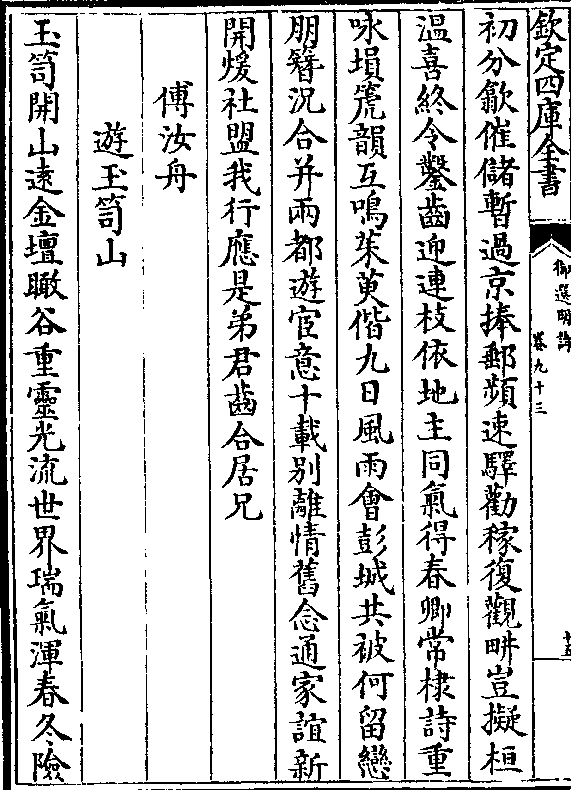 欽定四庫全書
御選明詩
卷九十三
十五
初分歙催儲暫過京捧郵頻速驛勸稼復觀畊豈擬桓
温喜終令鑿齒迎連枝依地主同氣得春卿常棣詩重
咏壎箎韻互鳴茱萸偕九日風雨會彭城共被何留戀
朋簪況合并兩都遊宦意十載别離情舊念通家誼新
開煖社盟我行應是弟君齒合居兄
傅汝舟
遊玉笥山
玉笥開山逺金壇瞰谷重靈光流世界瑞氣渾春冬險